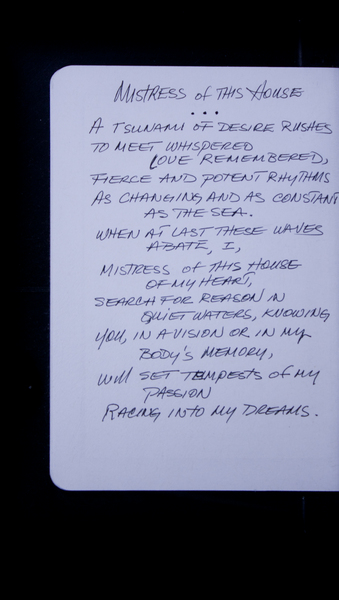 Mistress of this House
...
A TSUNAMI OF DESIRE RUSHES
TO MEET WHISPERED
LOVE REMEMBERED,
FIERCE AND POTENT RHYTHMS
AS CHANGING AND AS CONSTANT
AS THE SEA.
WHEN AT LAST THESE WAVES
ABATE, I,
MISTRESS of THIS HOUSE
OF MY HEART,
SEARCH FOR REASON IN
QUIET WATERS, KNOWING
YOU, IN A VISION OR IN MY
BODY'S MEMORY,
WILL SET TEMPESTS of MY
PASSION
RACING INTO MY DREAMS.